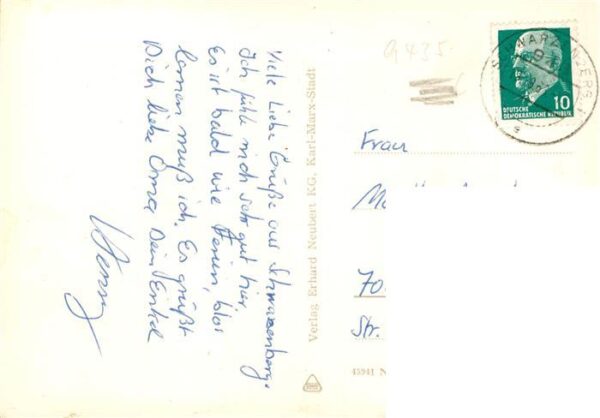 Viele Liebe Grüße aus Schwarzenberg.
Ich fühle mich sehr gut hier.
Es ist bald wie Ferien, blos
lernen muß ich. Es grüßt
Dich liebe Oma Dein Enkel
Verlag Erhard Neubert KG, Karl-Marx-Stadt
9435
DEUTSCHE
DEMOKRATISCHE REPUBLIK
10
Frau
70
Str.
45941 N